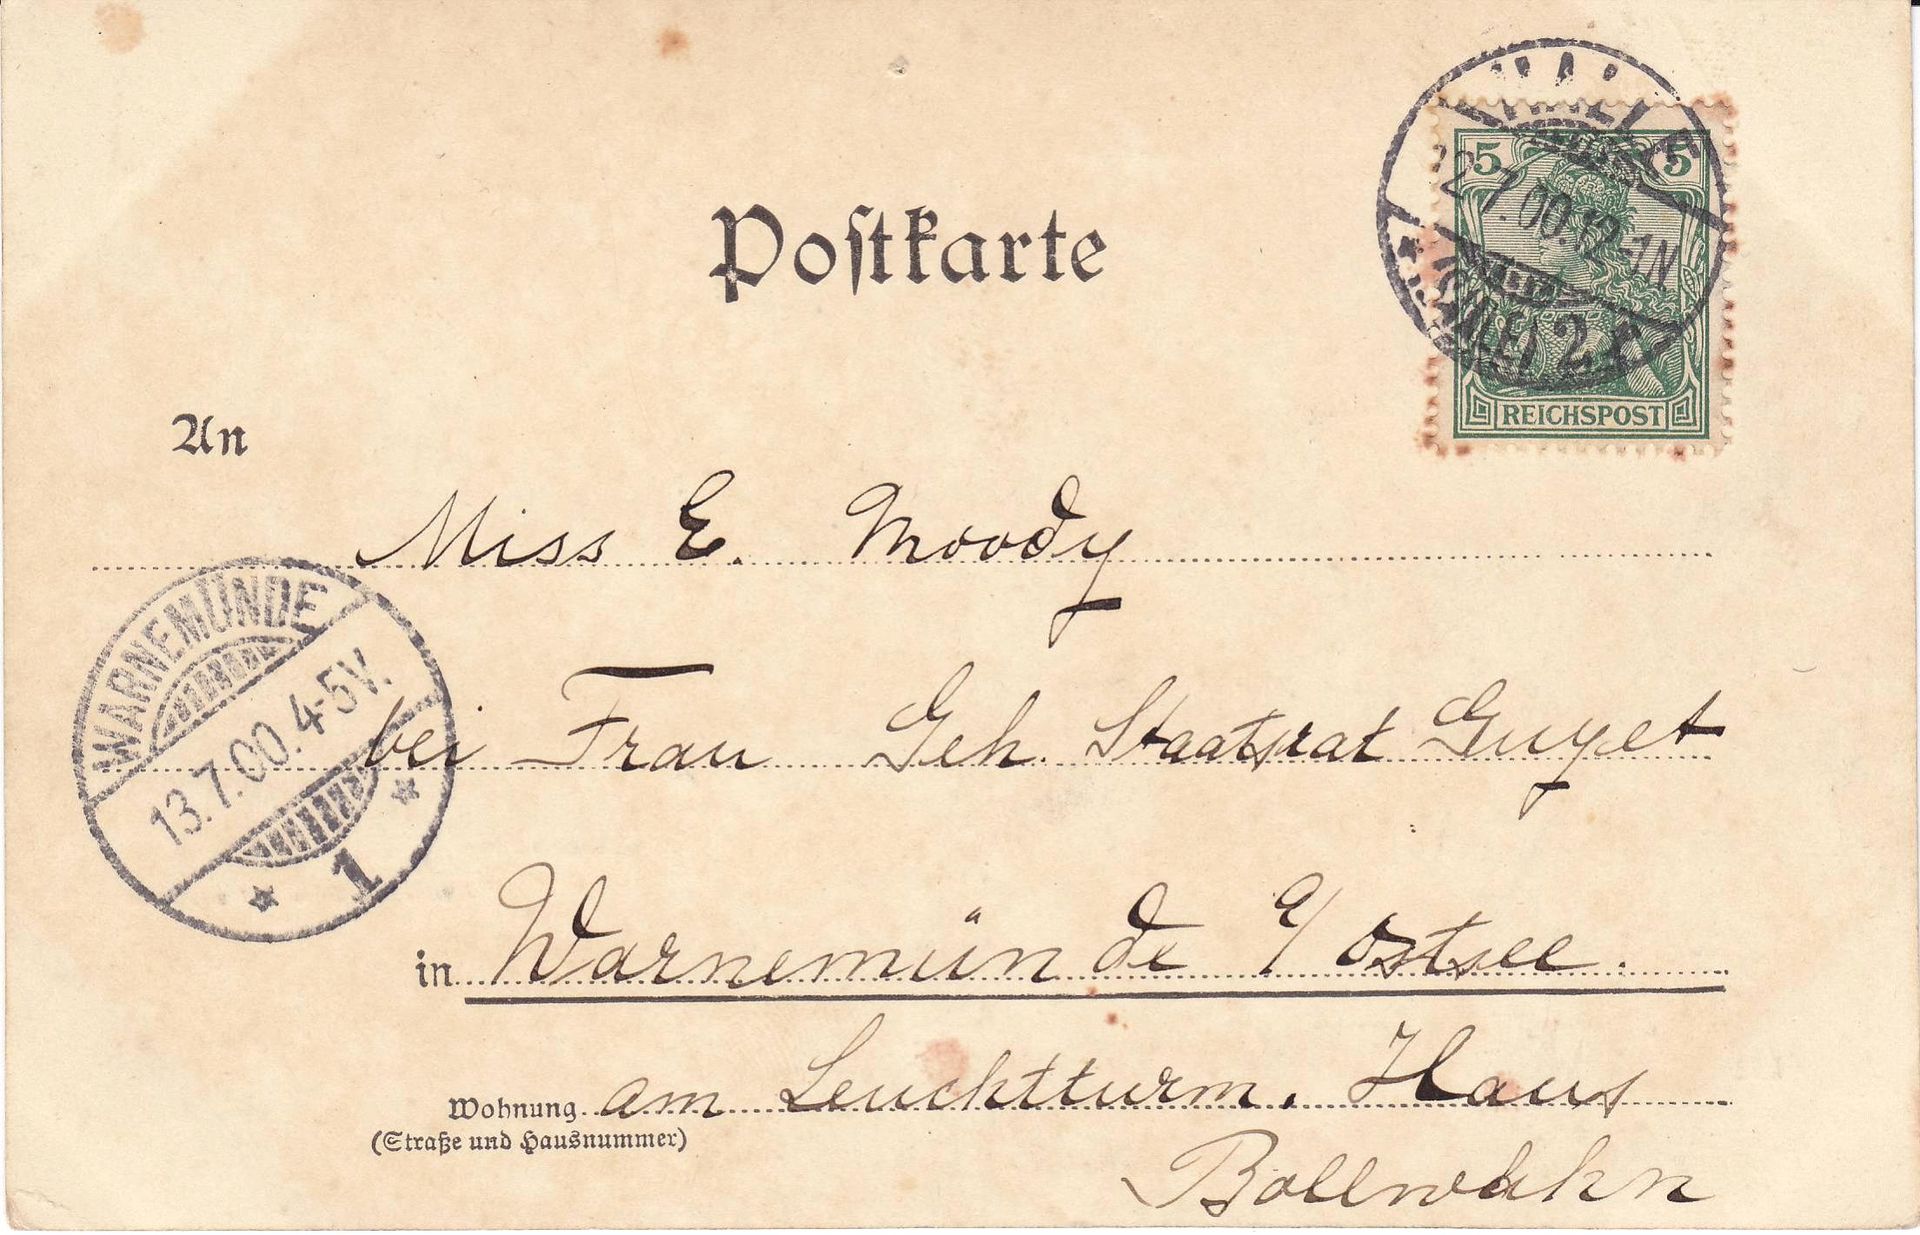 Postkarte
HALLE
12.7.00.12-1N
(SAALE) 2
5 5
REICHSPOST
An
Miss E. Moody
WARNEMÜNDE
13.7.00.4-5V.
1
bei Frau Geh. Staatsrat Guyet
in Warnemünde a/ Ostsee.
Wohnung am Leuchtturm. Haus
(Straße und Hausnummer)
Bollwahn